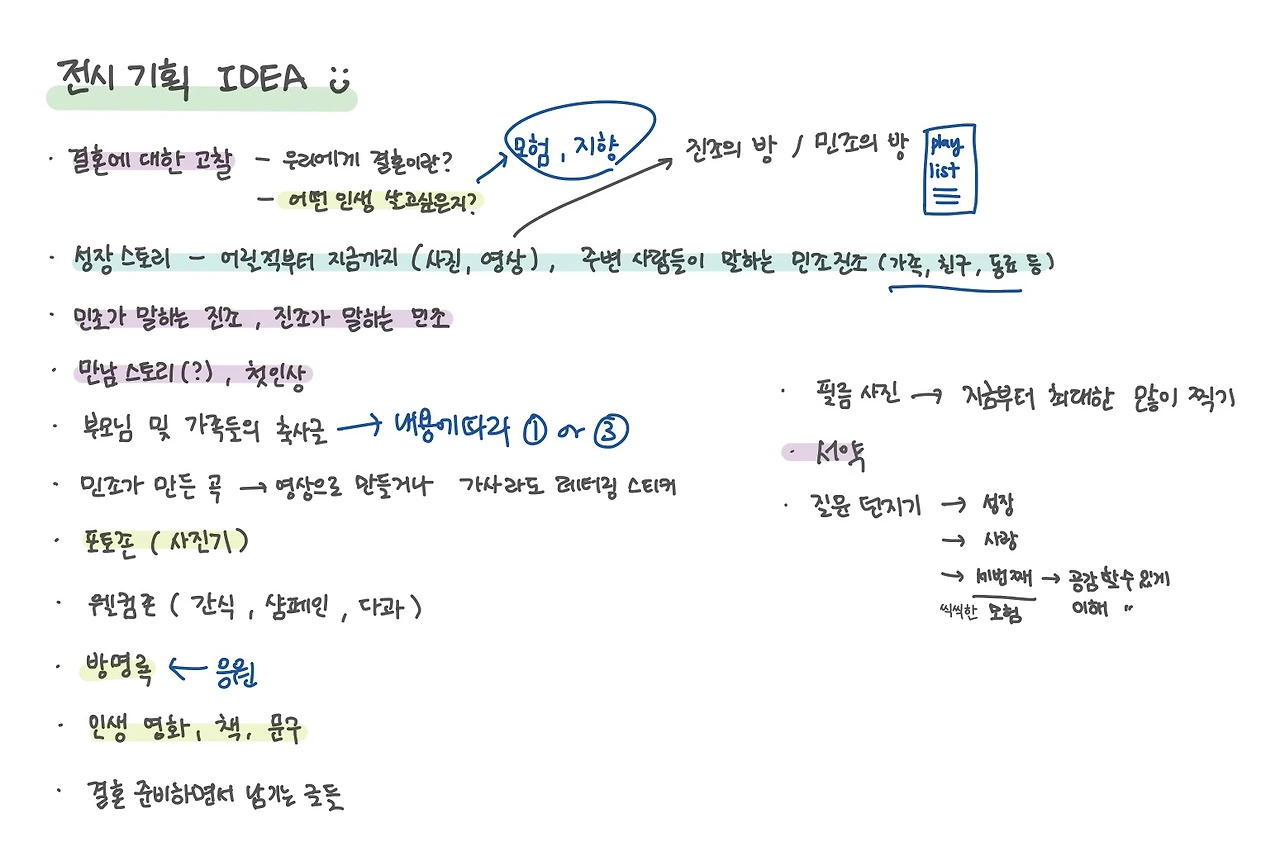 전시 기획 IDEA
· 결혼에 대한 고찰 - 우리에게 결혼이란?
- 어떤 인생 살고싶은지?
모험, 지향
진조의 방 / 민조의 방
play
list
· 성장스토리 - 어릴적부터 지금까지 (사진, 영상), 주변 사람들이 말하는 민조진조 (가족, 친구, 동료 등)
· 민조가 말하는 진조, 진조가 말하는 민조
· 만남스토리(?), 첫인상
· 부모님 및 가족들의 축사글 → 내용에따라 ① or ③
· 민조가 만든 곡 → 영상으로 만들거나 가사라도 레터링 스티커
· 포토존 (사진기)
· 웰컴존 (간식, 샴페인, 다과)
· 방명록 ← 응원
· 인생 영화, 책, 문구
· 결혼 준비하면서 남기는 글들
· 필름 사진 → 지금부터 최대한 많이 찍기
· 서약
· 질문 던지기 → 성장
→ 사랑
→ 세번째 → 공감할수있게
씩씩한 모험 이해 〃